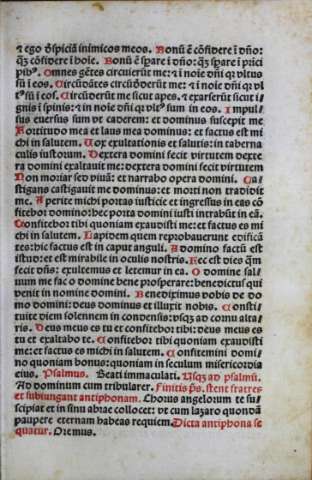 ⁊ ego dspiciā inimicos meos. Bonū ē cōfidere ī dn̄o:
qȝ cōfidere ī hoīe. Bonū ē sꝑare ī dn̄o: qȝ sꝑare ī pͥnci
pibꝰ. Omnes gētes circuierūt me: ⁊ ī noīe dn̄i qꝛ vltus
sū ī eos. Circūdātes circūdederūt me: ⁊ ī noīe dn̄i qꝛ vl
tꝰ sū ī eos. Circūdederūt me sicut apes. ⁊ exarserūt sicut i⸗
gnis ī spinis: ⁊ in noīe dn̄i qꝛ vltꝰ sum in eos. Impul⸗
sus euersus sum vt caderem: et dominus suscepit me
Fortitudo mea et laus mea dominus: et factus est mi
chi in salutem. Uox exultationis et salutis: in taberna
culis iustorum. Dextera domini fecit virtutem dexte
ra domini exaltauit me: dextera domini fecit virtutem
Non moriar sed viuā: et narrabo opera domini. Ca⸗
stigans castigauit me dominus: et morti non tradidit
me. Aperite michi portas iusticie et ingressus in eas cō
fitebor domino: hec porta domini iusti intrabūt in eā.
Confitebor tibi quoniam exaudisti me: et factus es mi
chi in salutem. Lapidem quem reprobauerunt edificā
tes: hic factus est in caput anguli. A domino factū est
istud: et est mirabile in oculis nostris. Hec est dies qm̄
fecit dn̄s: exultemus et letemur in ea. O domine sal⸗
uum me fac o domine bene prosperare: benedictus qui
venit in nomine domini. Benediximus vobis de do
mo domini: deus dominus et illuxit nobis. Consti⸗
tuite diem solennem in condensis: vsqȝ ad cornu alta⸗
ris. Deus meus es tu et confitebor tibi: deus meus es
tu et exaltabo te. Confitebor tibi quoniam exaudisti
me: et factus es michi in salutem. Confitemini domi⸗
no quoniam bonus: quoniam in seculum misericordia
eius. Psalmus. Beati immaculati. Usqȝ ad psalmū.
Ad dominum cum tribularer. Finitis p̄s. stent fratres
et subiungant antiphonam. Chorus angelorum te su⸗
scipiat et in sinu abrae collocet: vt cum lazaro quondā
paupere eternam habeas requiem. Dicta antiphona se
quatur. Oremus.